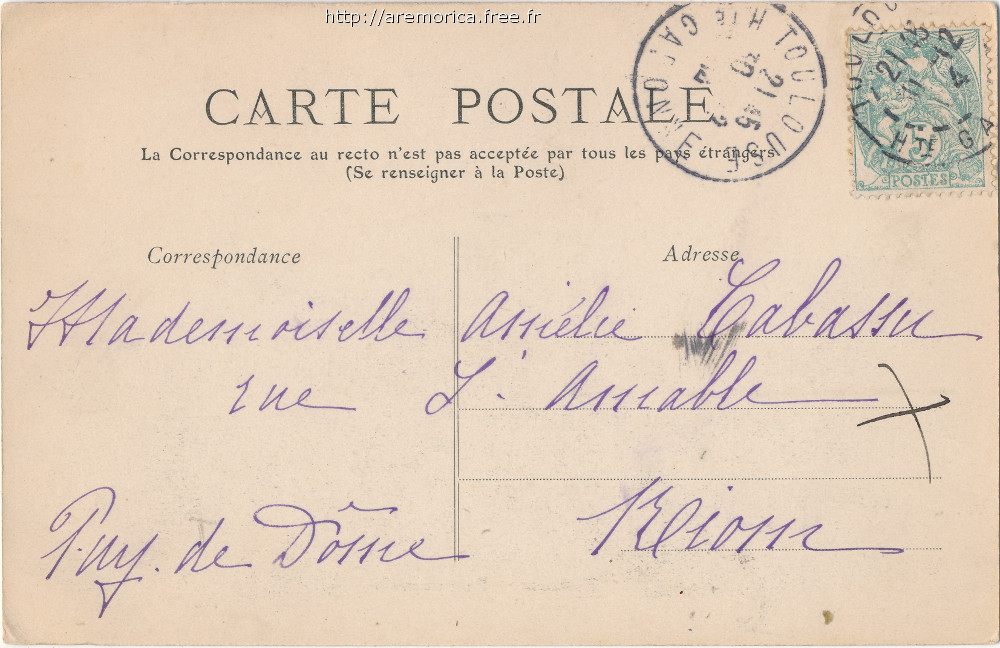 http://aremorica.free.fr
CARTE POSTALE
La Correspondance au recto n'est pas acceptée par tous les pays étrangers
(Se renseigner à la Poste)
TOULOUSE
Hte GARONNE
21 45
POSTES
Correspondance
Adresse
Mademoiselle Amélie Cabassu
rue St. Amable
Puy. de Dôme Riom